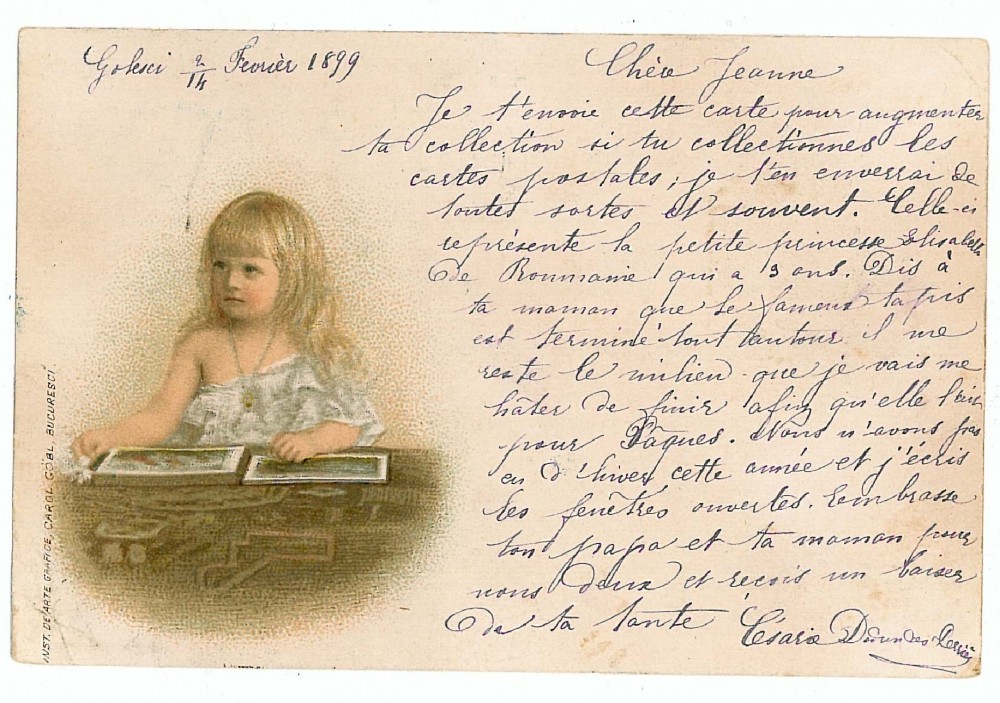 Golesci 2/14 Fevrièr 1899
Chère Jeanne
Je t'envoie cette carte pour augmenter
ta collection si tu collectionnes les
cartes postales; je t'en enverrai de
toutes sortes et souvent. Celle-ci
représente la petite princesse Elisabeth
de Roumanie qui a 3 ans. Dis à
ta maman que le fameux tapis
est terminé tout autour il me
reste le milieu que je vais me
hâter de finir afin qu'elle l'ait
pour Pâques. Nous n'avons pas
eu d'hiver cette année et j'écris
les fenêtres ouvertes. Embrasse
ton papa et ta maman pour
nous deux et reçois un baiser
de ta tante Césarie
INST. DE ARTE GRAFICE, CAROL GÖBL. BUCURESCĬ